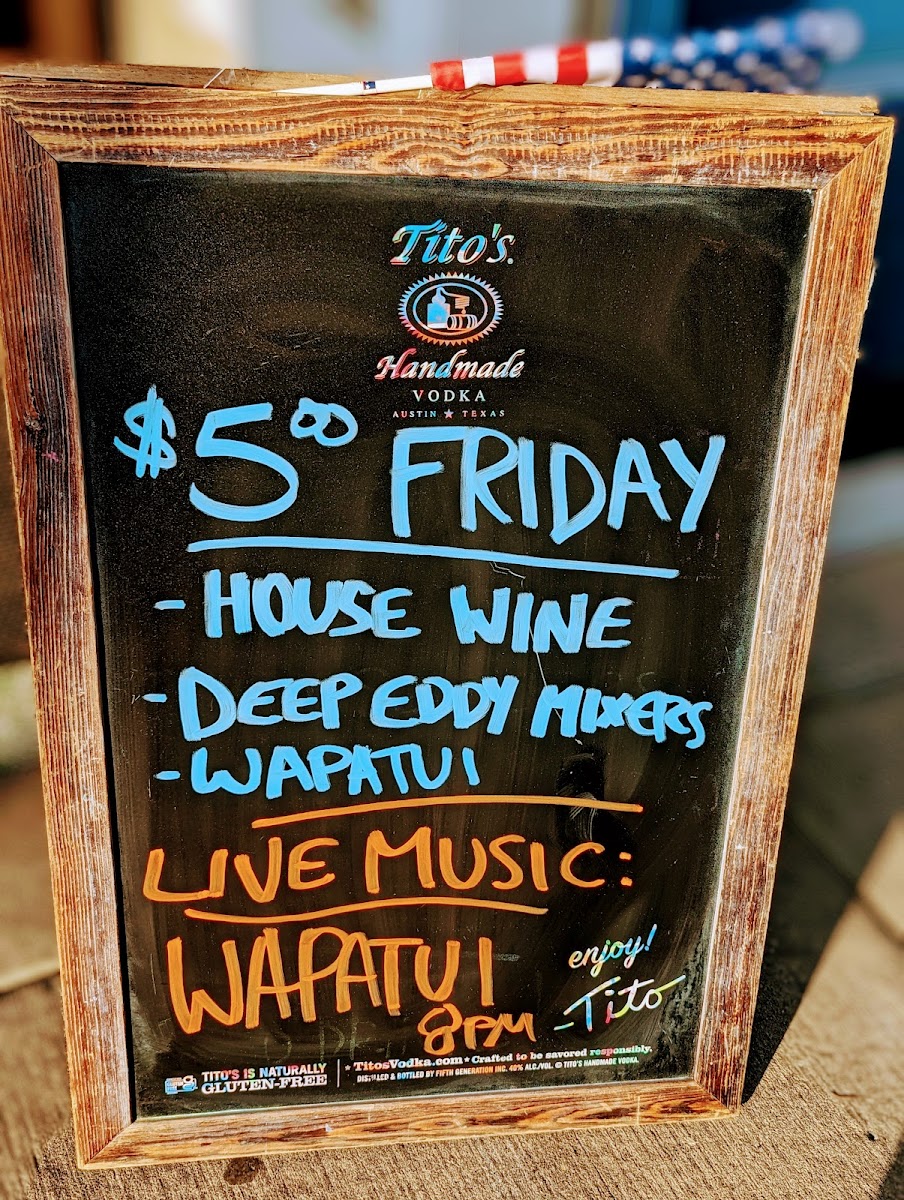 Tito's
Handmade
VODKA
AUSTIN ★ TEXAS
$5⁰⁰ FRIDAY
- HOUSE WINE
- DEEP EDDY MIXERS
- WAPATUI
LIVE MUSIC:
WAPATUI
8PM
enjoy!
-Tito
TITO'S IS NATURALLY
GLUTEN-FREE
* TitosVodka.com * Crafted to be savored responsibly.
DISTILLED & BOTTLED BY FIFTH GENERATION INC. 40% ALC./VOL. © TITO'S HANDMADE VODKA.